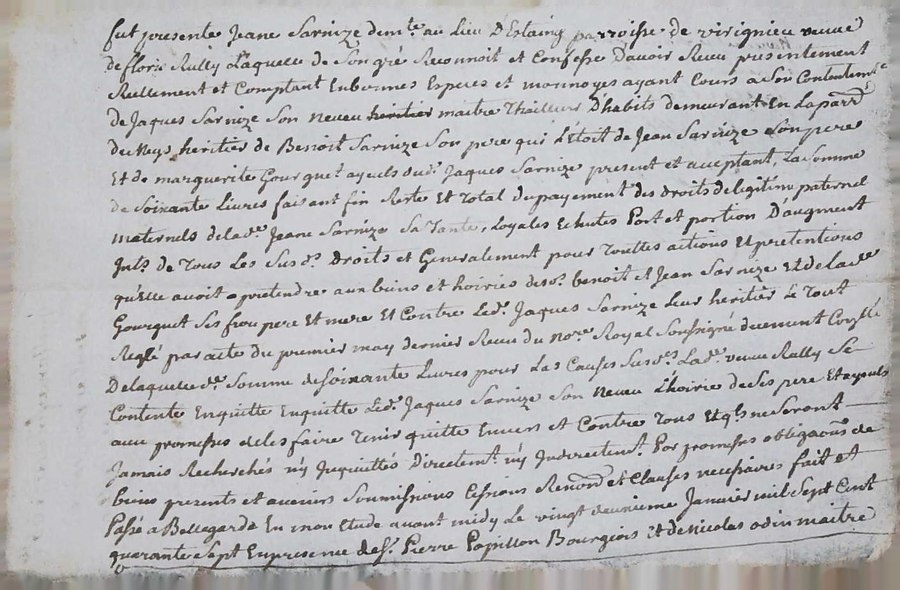 fut presente Jeane Sarnize demte. au lieu D'Estaing parroisse de virignieu veuve
de floris Rully Laquelle de Son gré Reconnoit et Confesse D'avoir Receu presentement
Reellement et Comptant En bonnes Especes et monnoyes ayant Cours a Son Contentemt.
de Jaques Sarnize Son neveu heritier maitre Thailleur D'habits demeurant En La parr.
de heritier de Benoit Sarnize Son pere qui L'Etoit de Jean Sarnize Son pere
Et de marguerite Gourguet ayeuls dud. Jaques Sarnize present et acceptant, La Somme
de Soixante Livres faisant fin Reste Et Total du payement des droits de legitime paternel
maternels de lade. Jeane Sarnize Sa Tante, Loyales Echutes Part et portion D'augment
Jnts. de Tous Les Susds. Droits et Generalement pour Touttes actions Et pretentions
qu'elle avoit a pretendre aux biens et hoiries desds. benoit et Jean Sarnize Et de lade.
Gourguet Ses frere pere Et mere Et Contre Led. Jaques Sarnize Leur heritier Le Tout
Reglé par acte du premier may dernier Receu du nore. Royal Soussigné duement Conllé
De laquelle de. Somme de Soixante Livres pour Las Causes Susds. Lade. veuve Rully Se
Contente En quitte En quitte Led. Jaques Sarnize Son Neveu L'hoirie de Ses pere Et ayeuls
avec promesses de les faire Tenir quitte Envers et Contre Tous Et qls. ne Seront
Jamais Recherchés n'y Jnquiettés Directemt. n'y Jndirectemt. Par promesses obligaons. de
biens presents et avenirs Soumissions Cessions Renonons. et Clauses necessaires fait et
Passé a Bellegarde En mon Etude avant midy Le vingt deuxieme Janvier mil Sept Cent
quarante Sept En presence de Sr. Pierre Papillon Bourgeois Et de Nicolas odin maitre